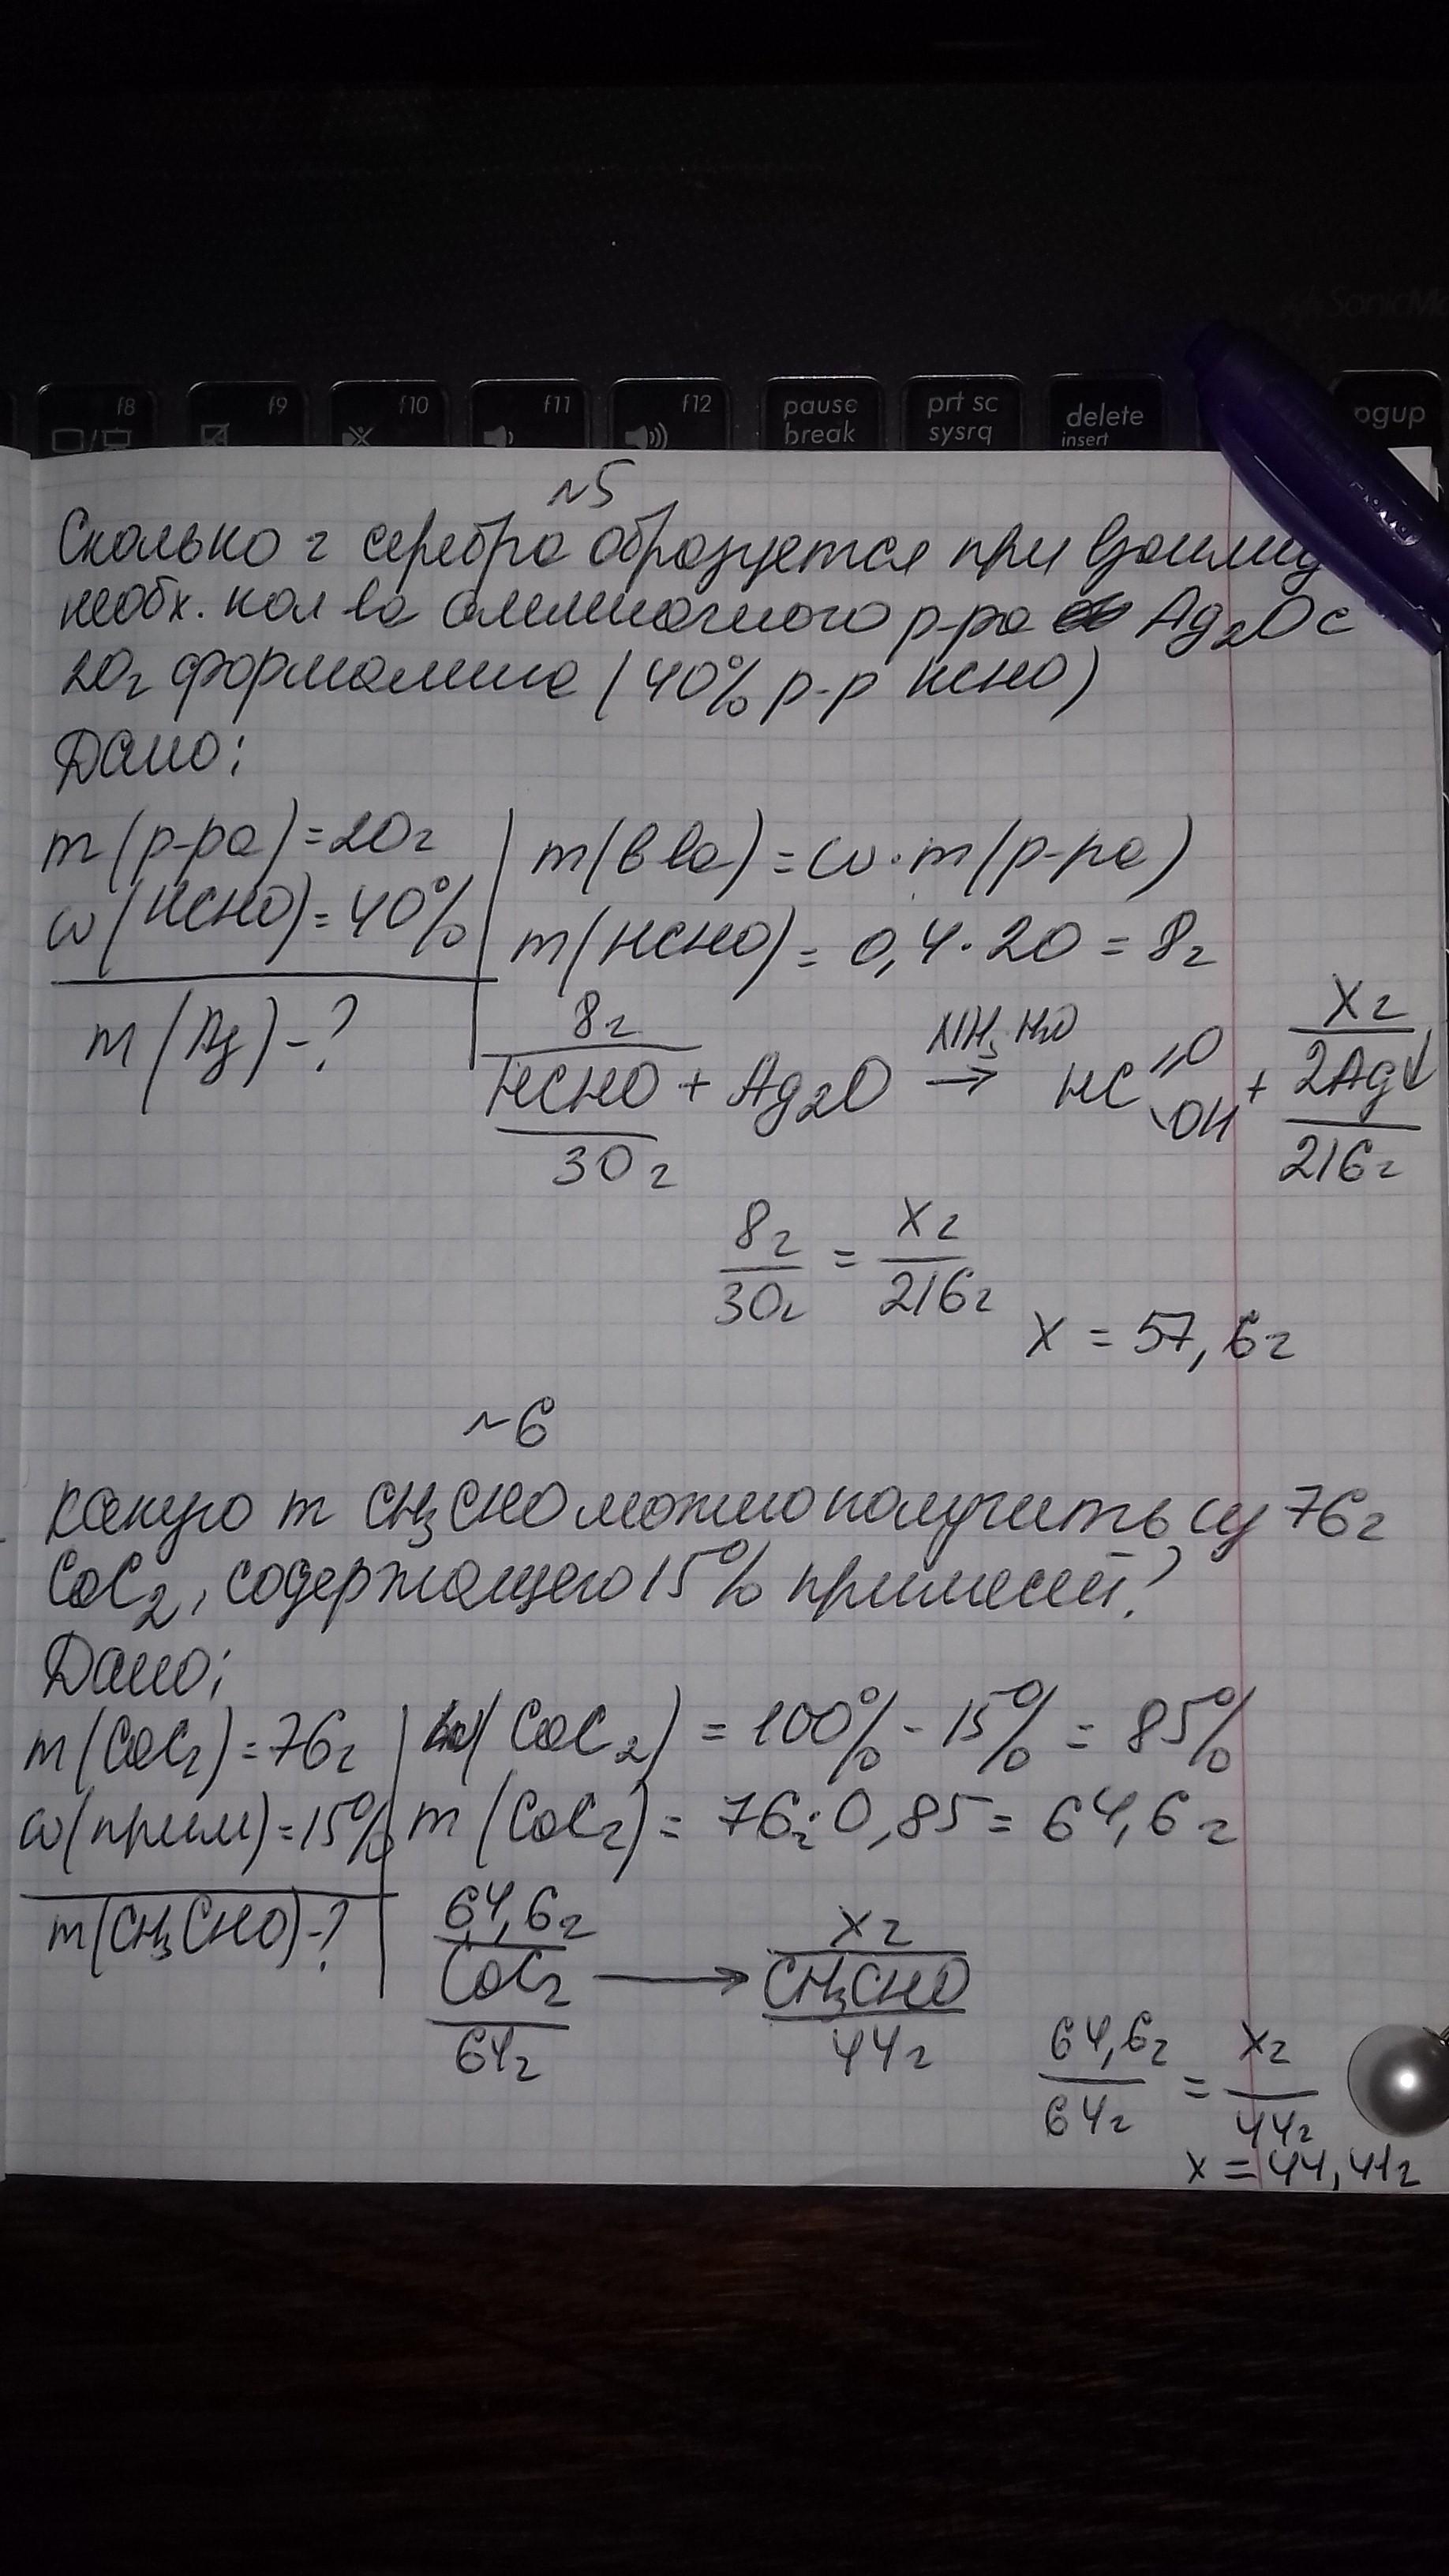 SonicMa
f8
f9
f10
f11
f12
pause break
prt sc sysrq
delete insert
pgup
№5
Сколько г серебра образуется при взаимод
необх. кол ва аммиачного р-ра Ag2O с
20г формалина (40% р-р HCHO)
Дано:
m(р-ра)=20г
ω(HCHO)=40%
m(Ag)-?
m(в ва)=ω·m(р-ра)
m(HCHO)=0,4·20=8г
8г
xг
HCHO + Ag2O NH3 H2O → HC =O \OH + 2Ag↓
30г
216г
8г/30г = xг/216г
x = 57,6г
№6
Какую m CH3CHO можно получить из 76г
CaC2, содержащего 15% примесей?
Дано:
m(CaC2)=76г
ω(прим)=15%
m(CH3CHO)-?
ω(CaC2) = 100% - 15% = 85%
m(CaC2)= 76г·0,85= 64,6г
64,6г
xг
CaC2 → CH3CHO
64г
44г
64,6г/64г = xг/44г
x=44,41г